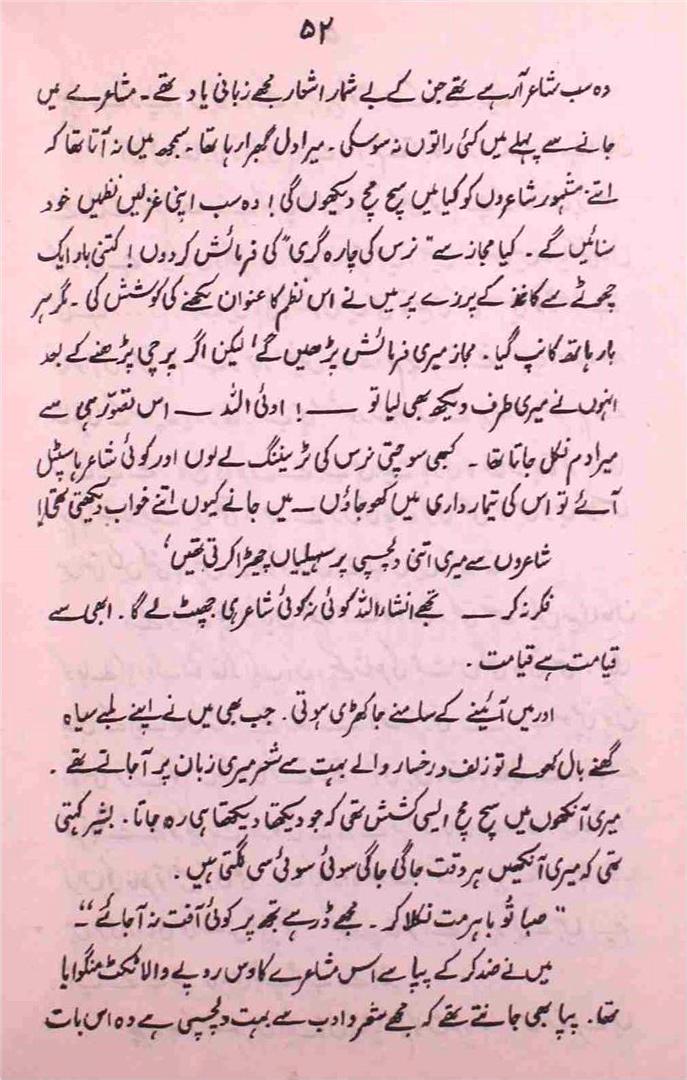 ۵۲
وہ سب شاعر آ رہے تھے جن کے بے شمار اشعار مجھے زبانی یاد تھے۔ مشاعرے میں
جانے سے پہلے میں کئی راتوں نہ سو سکی۔ میرا دل گھبرا رہا تھا۔ سمجھ میں نہ آتا تھا کہ
اتنے مشہور شاعروں کو کیا میں سچ مچ دیکھوں گی! وہ سب اپنی غزلیں نظمیں خود
سنائیں گے۔ کیا مجاز سے "نرس کی چارہ گری" کی فرمائش کر دوں! کتنی بار ایک
چھوٹے سے کاغذ کے پرزے پر میں نے اس نظم کا عنوان لکھنے کی کوشش کی۔ مگر ہر
بار ہاتھ کانپ گیا۔ مجاز میری فرمائش پڑھیں گے! لیکن اگر پرچی پڑھنے کے بعد
انہوں نے میری طرف دیکھ بھی لیا تو ——! اوئی اللہ — اس تصوّر ہی سے
میرا دم نکل جاتا تھا۔ کبھی سوچتی نرس کی ٹریننگ لے لوں اور کوئی شاعر ہاسپٹل
آئے تو اس کی تیمارداری میں کھو جاؤں — میں جانے کیوں اتنے خواب دیکھتی تھی!
شاعروں سے میری اتنی دلچسپی پر سہیلیاں چھیڑا کرتی تھیں'
فکر نہ کر — تجھے انشاء اللہ کوئی نہ کوئی شاعر ہی جھپٹ لے گا۔ ابھی سے
قیامت ہے قیامت۔
اور میں آئینے کے سامنے جا کھڑی ہوتی۔ جب بھی میں نے اپنے لمبے سیاہ
گھنے بال کھولے تو زلف و رخسار والے بہت سے شعر میری زبان پر آ جاتے تھے۔
میری آنکھوں میں سچ مچ ایسی کشش تھی کہ جو دیکھتا دیکھتا ہی رہ جاتا۔ بشیر کہتی
تھی کہ میری آنکھیں ہر وقت جاگی جاگی سوئی سوئی سی لگتی ہیں۔
"صبا تُو باہر مت نکلا کر۔ مجھے ڈر ہے تجھ پر کوئی آفت نہ آ جائے"۔
میں نے ضد کر کے پپا سے اس مشاعرے کا دس روپے والا ٹکٹ منگوایا
تھا۔ پپا بھی جانتے تھے کہ مجھے شعر و ادب سے بہت دلچسپی ہے وہ اس بات